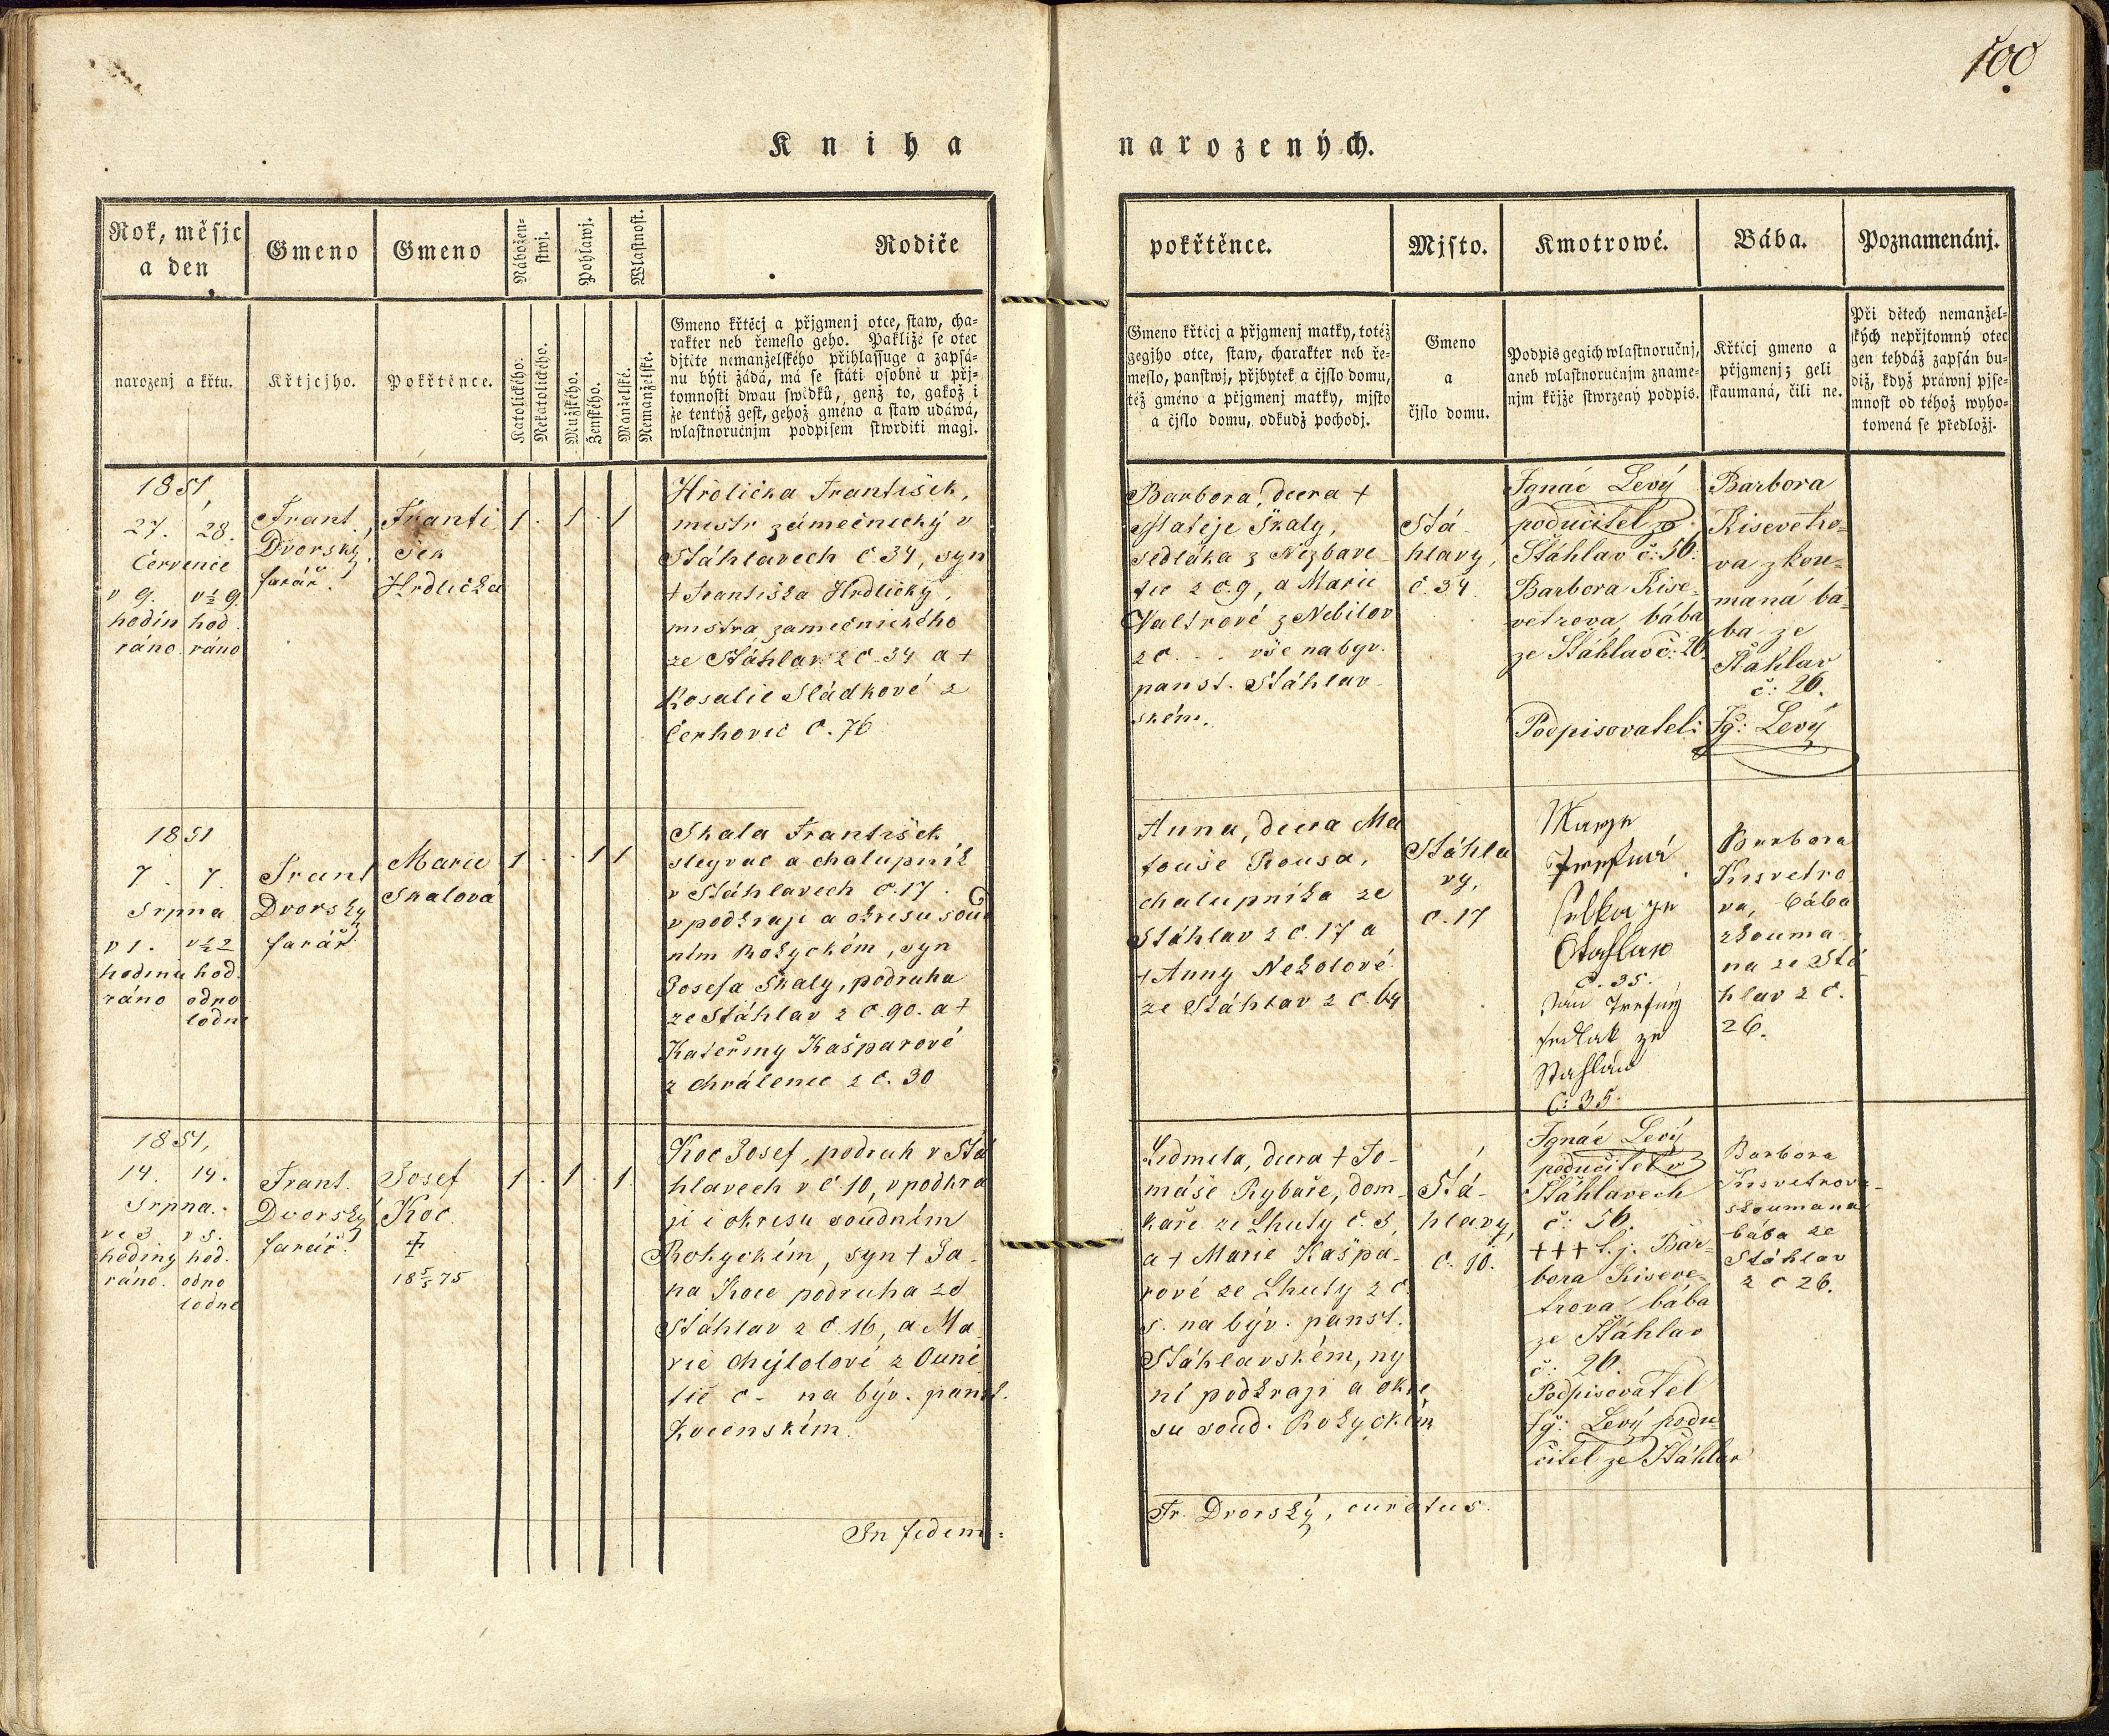 100
Kniha narozených.
Rok, měsjc
a den
Gmeno
Gmeno
Nábožen-
stwj.
Pohlawj.
Wlastnost.
Rodiče
pokřtěnce.
Mjsto.
Kmotrowé.
Bába.
Poznamenánj.
narozenj a křtu.
Křtjcjho.
Pokřtěnce.
Katolického.
Nekatolického.
Mužského.
Ženského.
Manželské.
Nemanželské.
Gmeno křtěcj a přjgmenj otce, staw, cha-
rakter neb řemeslo geho. Pakliže se otec
djtěte nemanželského přihlassuge a zapsá-
nu býti žádá, má se státi osobně u přj-
tomnosti dwau swědků, genž to, gakož i
že tentýž gest, gehož gméno a staw udáwá,
wlastnoručnjm podpisem stwrditi magj.
Gmeno křticj a přjgmenj matky, totéž
gegjho otce, staw, charakter neb ře-
meslo, panstwj, přjbytek a čjslo domu,
též gméno a přjgmenj matky, mjsto
a čjslo domu, odkudž pochodj.
Gmeno
a
čjslo domu.
Podpis gegich wlastnoručnj,
aneb wlastnoručnjm zname-
njm křjže stwrzený podpis.
Křticj gmeno a
přjgmenj; geli
skaumaná, čili ne.
Při dětech nemanžel-
ských nepřjtomný otec
gen tehdáž zapsán bu-
diž, když práwnj pjse-
mnost od téhož wyho-
towená se předložj.
1851,
27. 28.
Červenec
v 9. v ½ 9.
hodin hod.
ráno. ráno
Frant.
Dvorský,
farář.
Franti
šek
Hrdlička
1 . 1 . 1
Hrdlička František,
mistr zámečnický v
Stáhlavech č. 34, syn
+ Františka Hrdličky,
mistra zamečnického
ze Stáhlav z č. 34 a +
Rosalie Sládkové z
Cerhovic č. 76
Barbora, dcera +
Matěje Skaly,
sedláka z Nezbave
tic z č. 9, a Marie
Valtrové z Nebilov
z č. . . vše na byv.
panst. Stáhlav
ském.
Stá
hlavy,
č. 34.
Ignác Levý
podučitel z
Štáhlav č: 56.
Barbora Kise-
vetrova, bába
ze Štáhlav č: 26.
Podpisovatel:
Barbora
Kisevetro-
va zkou-
maná bá-
ba ze
Štáhlav
č: 26.
Ig: Levý
1851
7. 7.
Srpna
v 1. v ½ 2
hodinu hod.
ráno odpo
ledne
Frant
Dvorský
farář
Marie
Skalova
1 . . 1 1
Skala František
a chalupník
v Stáhlavech č. 17.
v podkrají a okresu soud
ním Rokyckém, syn
Josefa Skaly, podruha
ze Stáhlav z č. 90. a +
Kateřiny Kašparové
z Chválenic z č. 30
Anna, dcera Ma
touše Rousa,
chalupníka ze
Stáhlav z č. 17 a
+ Anny Nekolové
ze Stáhlav z č. 64
Stáhla
vy,
č. 17
ze
č. 35.
Jan
sedlak ze
Stahlav
č: 35.
Barbora
Kisvetro
va, bába
zkouma
na ze Stá
hlav z č.
26.
1851,
14. 14.
Srpna.
ve 3 v 5.
hodiny hod.
ráno. odpo
ledne
Frant.
Dvorský
farář.
Josef
Koc.
+
18 5/5 75
1 . 1 . 1
Koc Josef, podruh v Stá
hlavech v č. 10, v podkra
ji i okresu soudním
Rokyckém, syn + Ja-
na Koce podruha ze
Stáhlav z č. 16, a Ma
rie z
tic č - na býv. panst.
Ludmila, dcera + To-
máše Rybaře, dom-
kaře ze Lhuty č. 5,
a + Marie Kašpa-
rové ze Lhuty z č.
5. na býv. panst.
Stáhlavském, ny
ní podkraji a okre
su soud. Rokyckém
Stá-
hlavy,
č. 10.
Ignác Levý
podučitel v
Štáhlavech
č: 56.
+++ t. j. Bar-
bora Kiseve-
trova bába
ze Štáhlav
č: 26.
Podpisovatel
Ig: Levý podu-
čitel ze Štáhlav
Barbora
Kisvetrova
zkoumana
bába ze
Stáhlav
z č 26.
In fidem:
Fr. Dvorský, curatus.